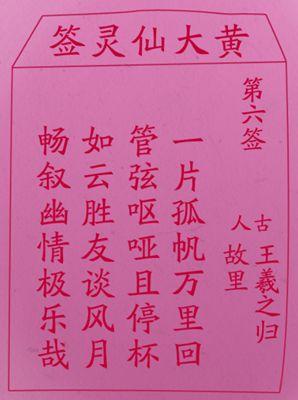 黄大仙灵签
第六签
古人
王羲之归
故里
一片孤帆万里回
管弦呕哑且停杯
如云胜友谈风月
畅叙幽情极乐哉